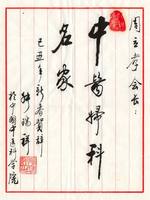 周立孝会长:
中醫婦科
名家
己丑年新春賀辞
於中国中医科学院